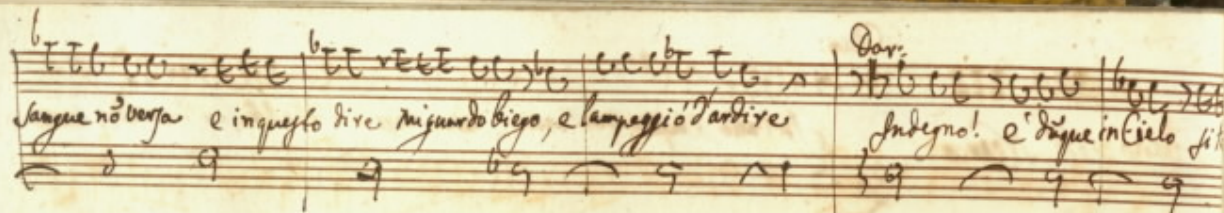 Dar:
sangue nõ versa e in questo dire mi guardo biego, e lampeggiò d'ardire Indegno! e dũque in Cielo